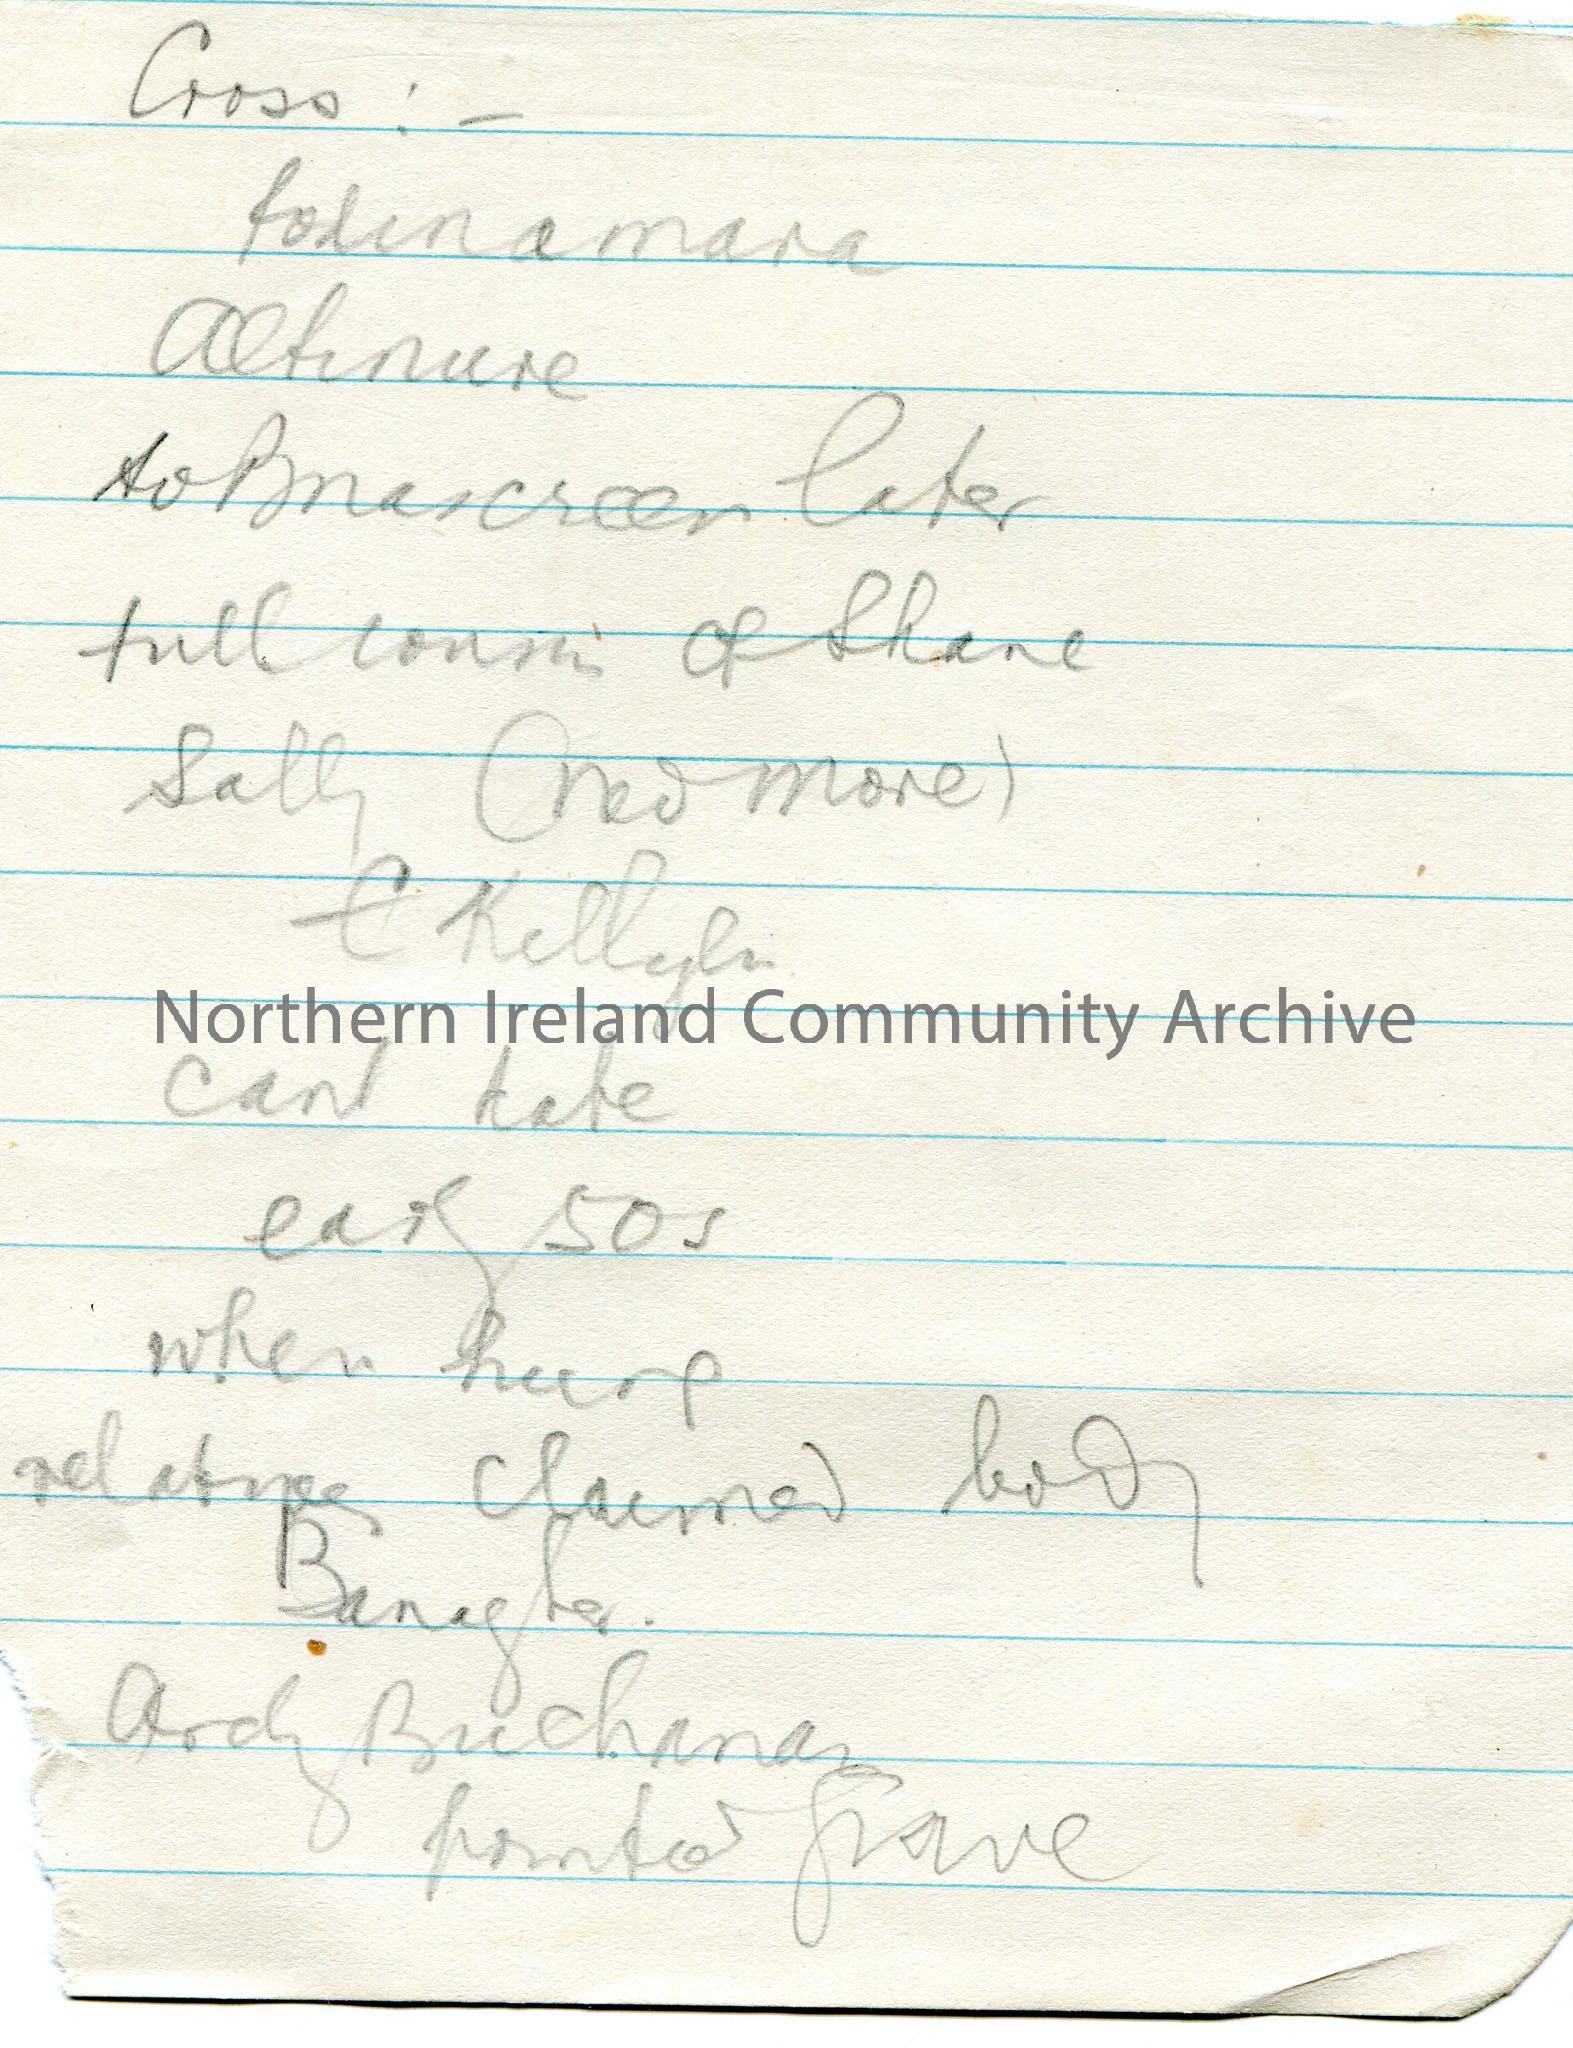 Cross :-
Altinure
to Bnascreen later
full cousin of Shane
Sally (ned more)
Northern Ireland Community Archive
Cant tate
early 50s
when hung
relatives claimed body
Banagher.
Andy Buchanan
pointed grave